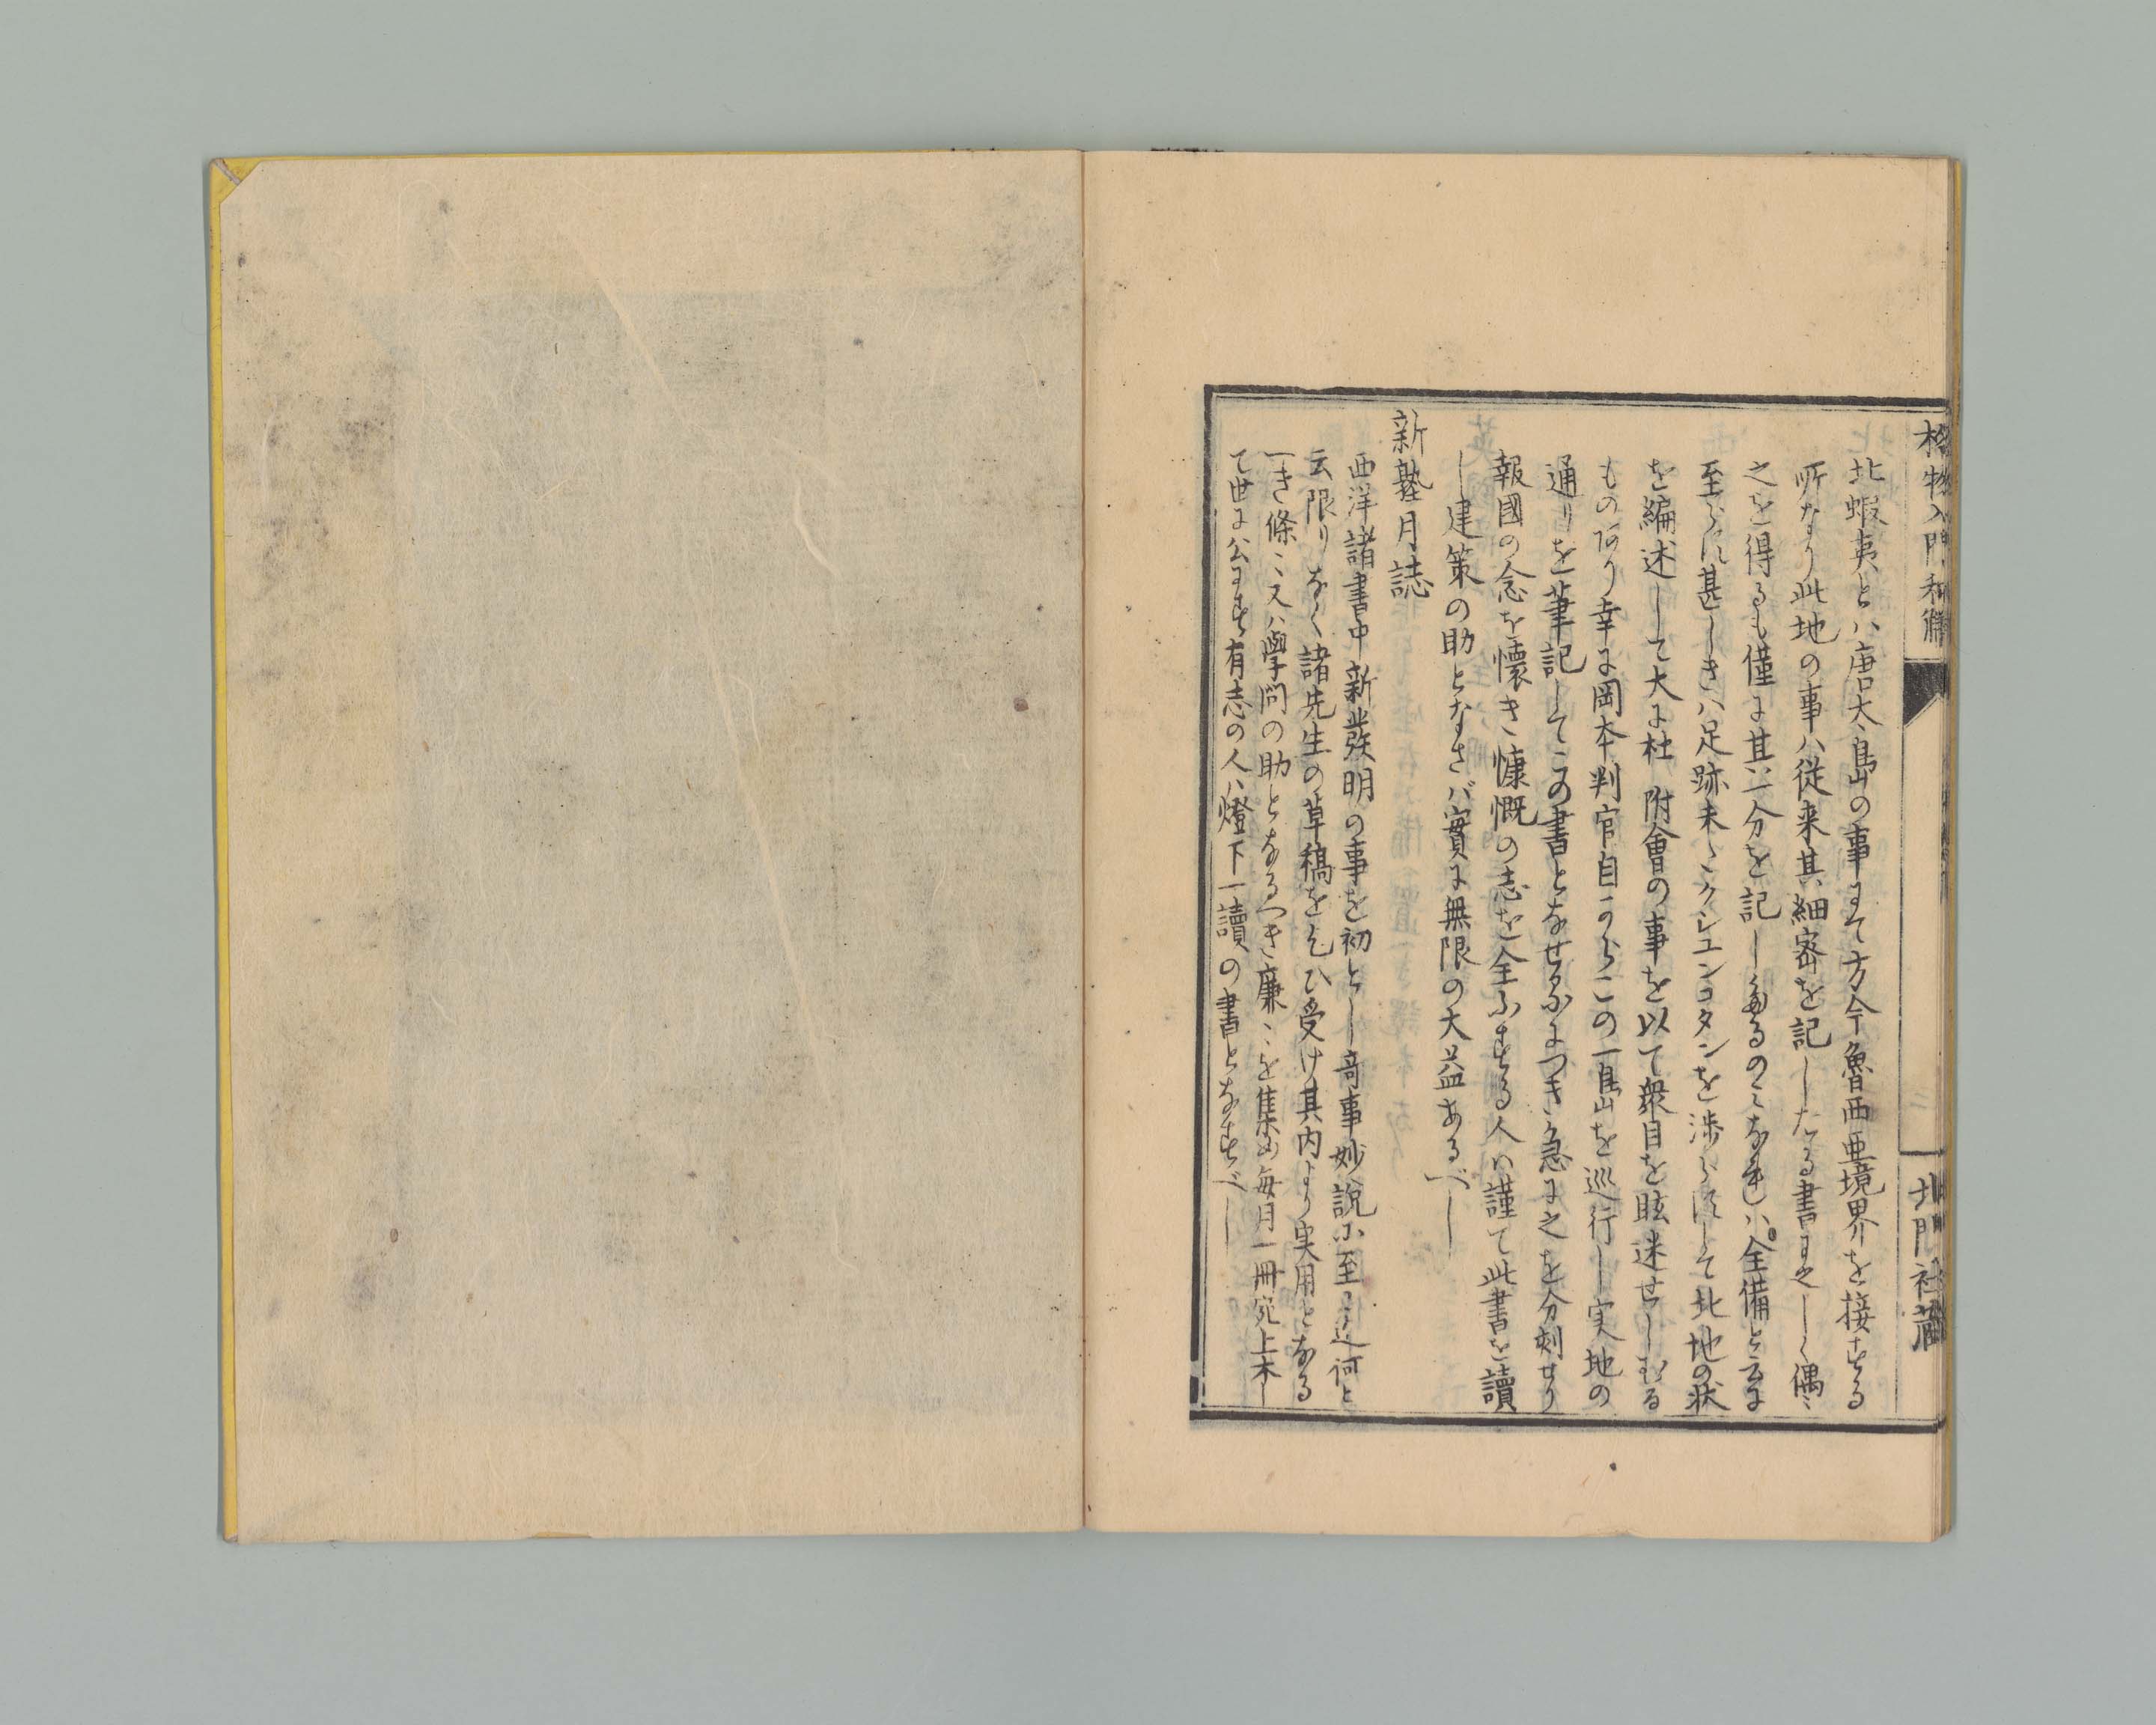 格物入門和解
北門社蔵
北蝦夷とハ唐太島の事にて方今魯西亜境界を接する
所なり此地の事ハ従来其細密を記したる書に乏しく偶〻
之を得るも僅に其一二分を記したるのミなれハ全備と云に
至らす甚しきハ足跡未タクシユンコタンを渉らすして北地の状
を編述して大に杜 附會の事を以て衆目を眩迷せしむる
ものあり幸に岡本判官自からこの一島を巡行し実地の
通りを筆記してこの書となせるにつき急に之を分刻せり
報國の念を懐き慷慨の志を全ふする人ハ謹て此書を讀
し建策の助となさバ實に無限の大益あるべし
新塾月誌
西洋諸書中新發明の事を初とし奇事妙説に至ミ迄何と
云限りなく諸先生の草稿を乞ひ受け其内より実用となる
へき條〻又ハ學問の助となるへき廉〻を集め毎月一冊宛上木し
て世に公にす有志の人ハ燈下一讀の書となすべし